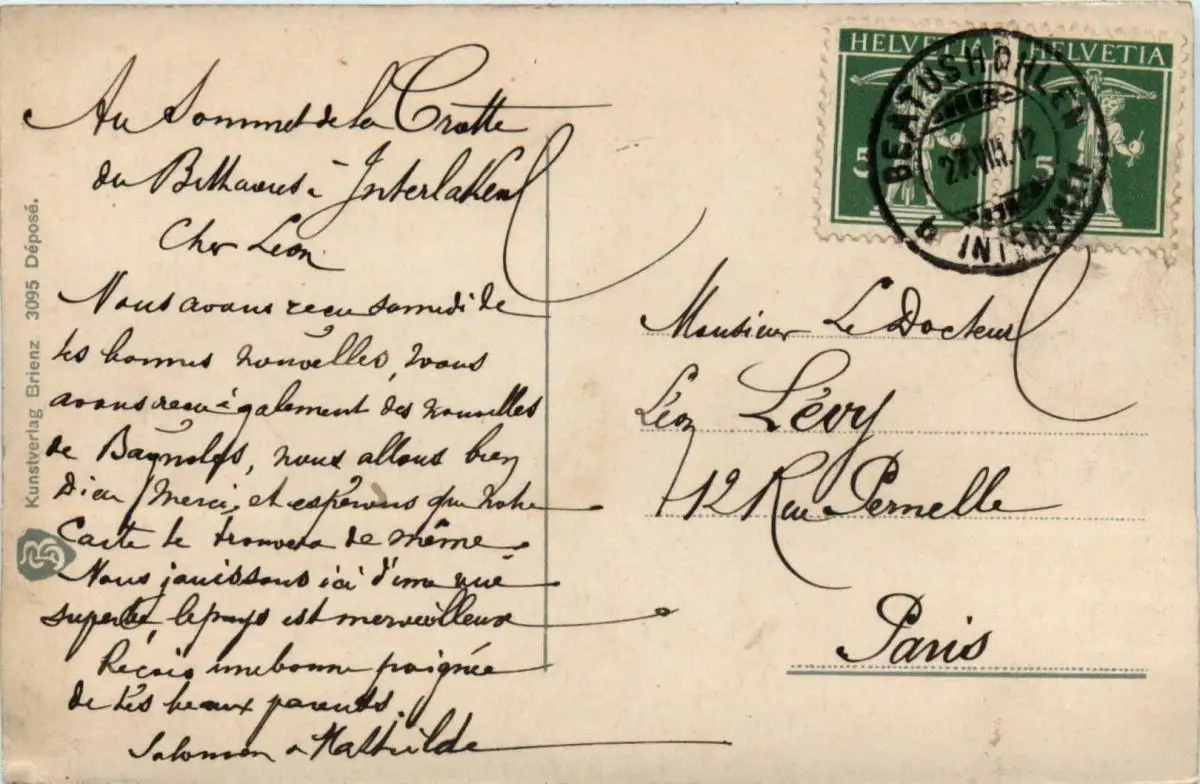 Au Sommet de la Grotte
du à Interlaken
Cher Léon
Nous avons reçu samedi de
tes bonnes nouvelles, nous
avons reçu également des nouvelles
de Bagnoles, nous allons bien
Dieu Merci, et espérons que notre
Carte te trouvera de même.
Nous jouissons ici d'une vue
superbe, le pays est merveilleux
Reçois une bonne poignée
de tes beaux parents.
Salomon & Mathilde
Kunstverlag Brienz 3095 Déposé.
HELVETIA HELVETIA
5 5
BEATUSHÖHLEN
27.VIII.12
INTERLAKEN
Monsieur Le Docteur
Léon Lévy
12 Rue Pernelle
Paris